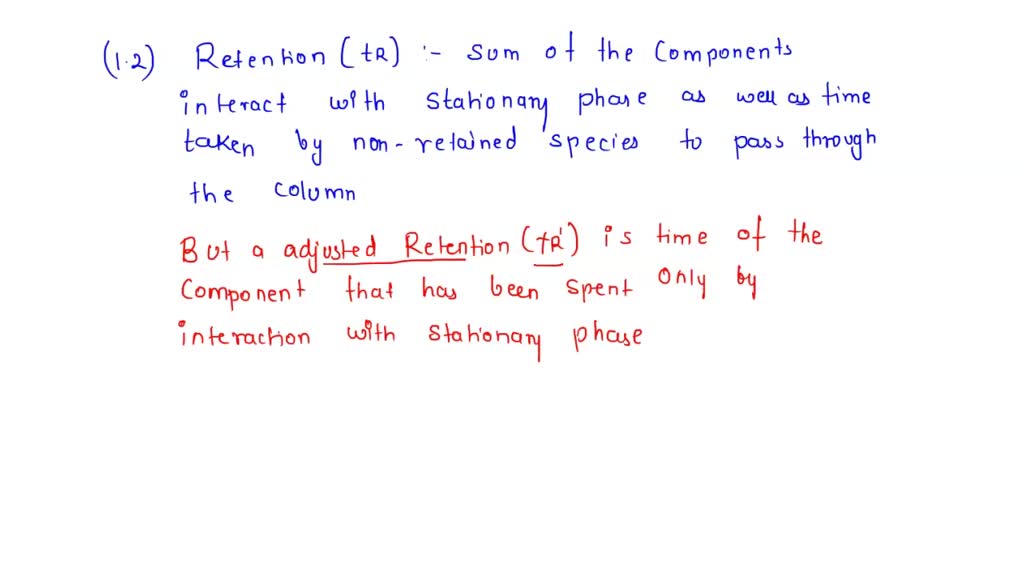 (1.2) Retention (tR) :- sum of the components
interact with stationary phase as well as time
taken by non-retained species to pass through
the column
But a adjusted Retention (tR') is time of the
component that has been spent only by
interaction with stationary phase